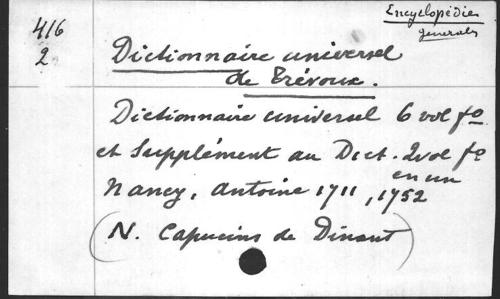 Encyclopédies
générales
416
2
Dictionnaire universel
de Trévoux.
Dictionnaire universel 6 vol fo
et Supplément au Dict. 2 vol fo
en un
Nancy, Antoine 1711, 1752
(N. Capucins de Dinant)